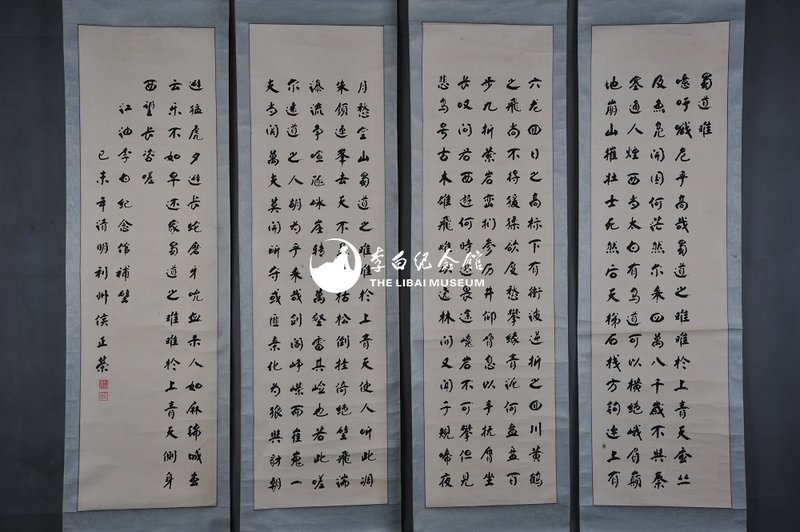 蜀道难
噫吁嚱危乎高哉蜀道之难难於上青天蚕丛
及鱼凫开国何茫然尔来四萬八千岁不与秦
塞通人烟西当太白有鸟道可以横绝峨眉巅
地崩山摧壮士死然后天梯石栈方钩连上有
六龙回日之高标下有衝波逆折之回川黄鹤
之飞尚不得援猱欲度愁攀缘青泥何盘盘百
步九折萦岩峦扪参历井仰胁息以手抚膺坐
长叹问君西遊何时还畏途巉岩不可攀但见
悲鸟号古木雄飞雌从绕林间又闻子规啼夜
月愁空山蜀道之难难於上青天使人听此凋
朱颜连峯去天不盈尺枯松倒挂倚绝壁飞湍
瀑流争喧豗砯崖转石萬壑雷其险也若此嗟
尔远道之人胡为乎来哉剑阁峥嵘而崔嵬一
夫当关萬夫莫开所守或匪亲化为狼与豺朝
避猛虎夕避长蛇磨牙吮血杀人如麻锦城虽
云乐不如早还家蜀道之难难於上青天侧身
西望长咨嗟
江油李白纪念馆补壁
己未年清明利州侯正荣
李白纪念馆
THE LIBAI MUSEUM